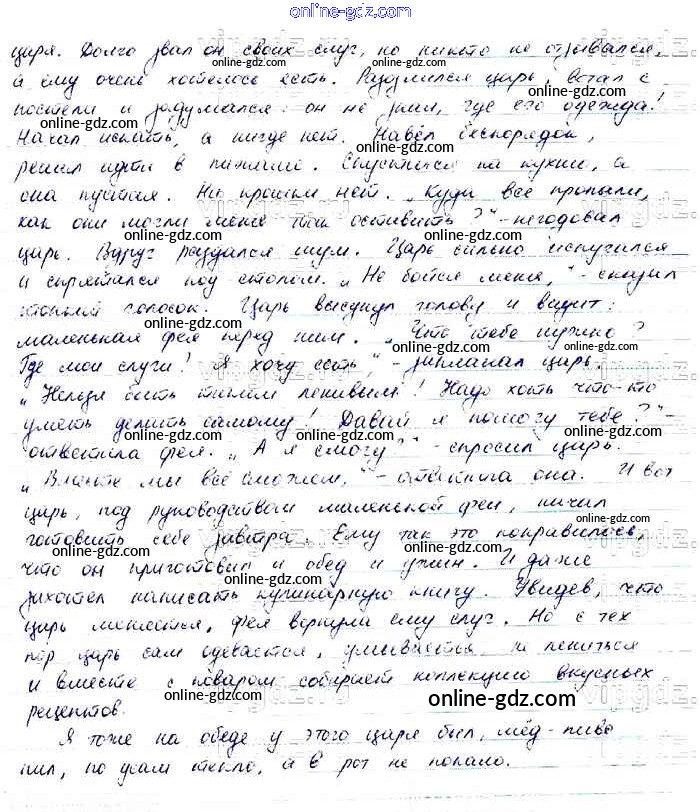 online-gdz.com
царя. Долго звал он своих слуг, но никто не отзывался,
а ему очень хотелось есть. Разозлился царь, встал с
постели и задумался: он не знал, где его одежда!
Начал искать, а нигде нет. Навёл беспорядок,
решил идти в пижаме. Спустился на кухню, а
она пустая. Ни крошки нет. „Куда все пропали,
как они могли меня так оставить?" - негодовал
царь. Вдруг раздался шум. Царь сильно испугался
и спрятался под столом. „Не бойся меня," - сказал
тонкий голосок. Царь высунул голову и видит:
маленькая фея перед ним. „Что тебе нужно?
Где мои слуги? Я хочу есть," - заплакал царь.
„Нельзя быть таким ленивым! Надо хоть что-то
уметь делать самому! Давай я помогу тебе?" -
ответила фея. „А я смогу?" - спросил царь.
„Вместе мы всё сможем," - ответила она. И вот
царь, под руководством маленькой феи, начал
готовить себе завтрак. Ему так это понравилось,
что он приготовил и обед и ужин. И даже
захотел написать кулинарную книгу. Увидев, что
царь меняется, фея вернула ему слуг. Но с тех
пор царь сам одевается, умывается, не ленится
и вместе с поваром собирает коллекцию вкусных
рецептов.
Я тоже на обеде у этого царя был, мёд-пиво
пил, по усам текло, а в рот не попало.
online-gdz.com